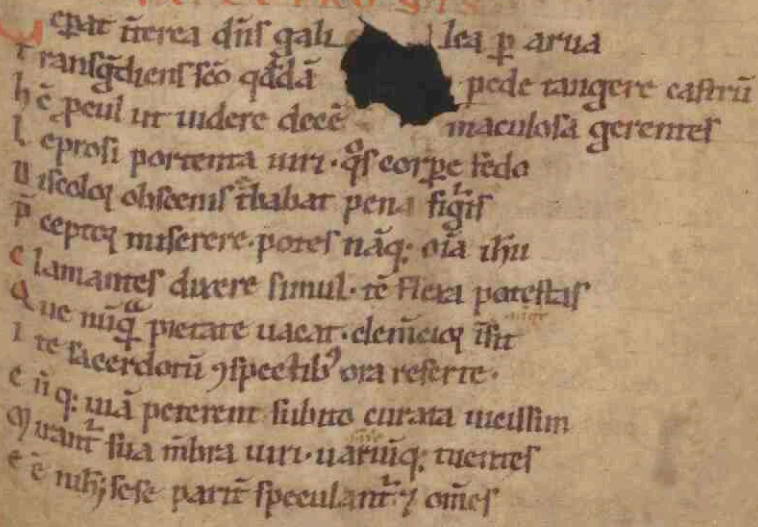 cepat īterea dn̄s gali lea ꝑ arua
t ransgd̄iens sc̄o qd̄dā pede tangere castrū
h ē pcul ut uidere decē maculosa gerentes
L eprosi portenta uiri · qͦs corꝑe fedo
D iscoloꝛ obscenis tb̄abat pena figis
P̄ ceptoꝛ miserere · potes nāq; oīa ih̄u
c lamantes dixere simul · tē flexa potestas
Q ue nūqᷓ pietate uacat · clem̄cioꝛ īfit
I te sacerdotū ꝯspectibꝰ ora referte ·
c ūq; uiā peterent subito curata uicissim
M irant᷑ sua mb̄ra uiri · uariūq; tuentes
e ē nih; sese parit̄ speculant᷑ ⁊ om̄es